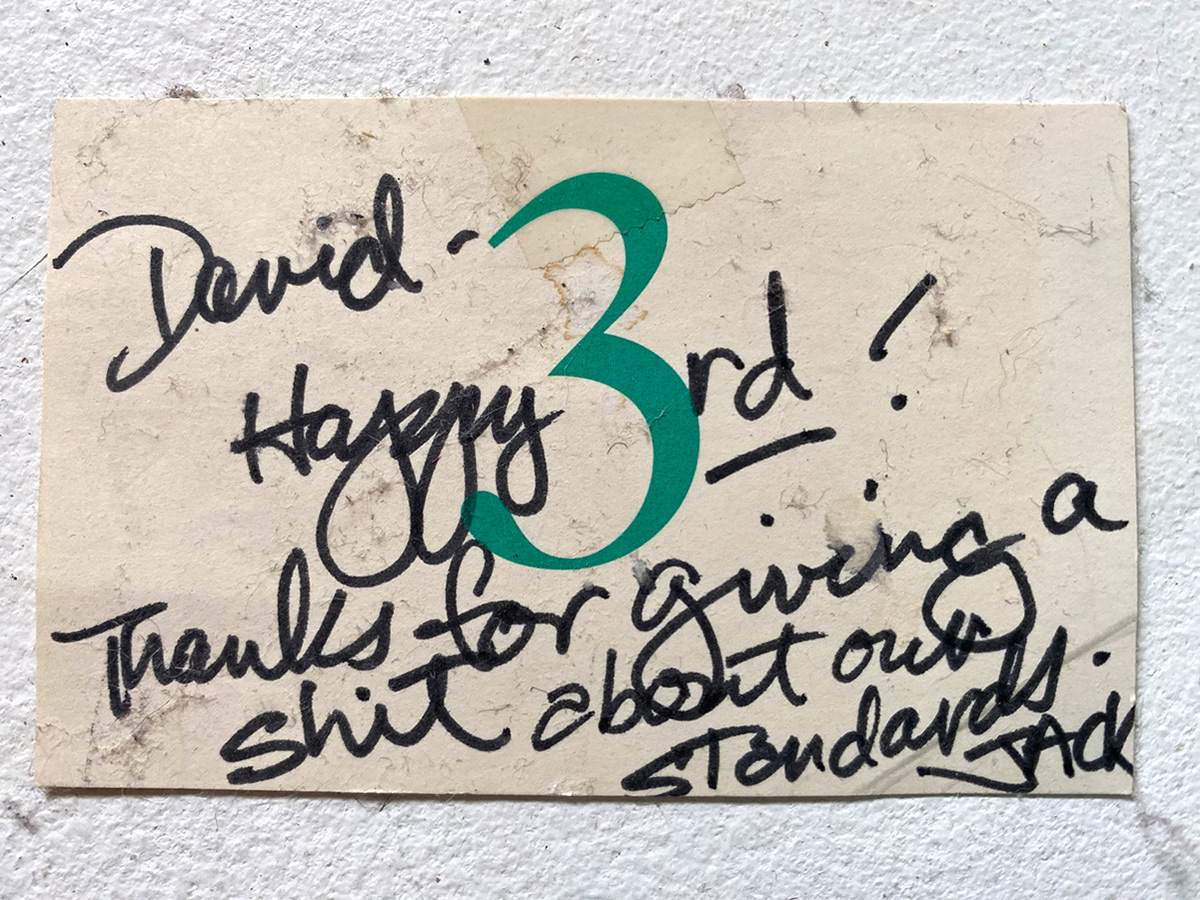 David -
Happy 3rd!
Thanks for giving a
shit about our
standards.
JACK